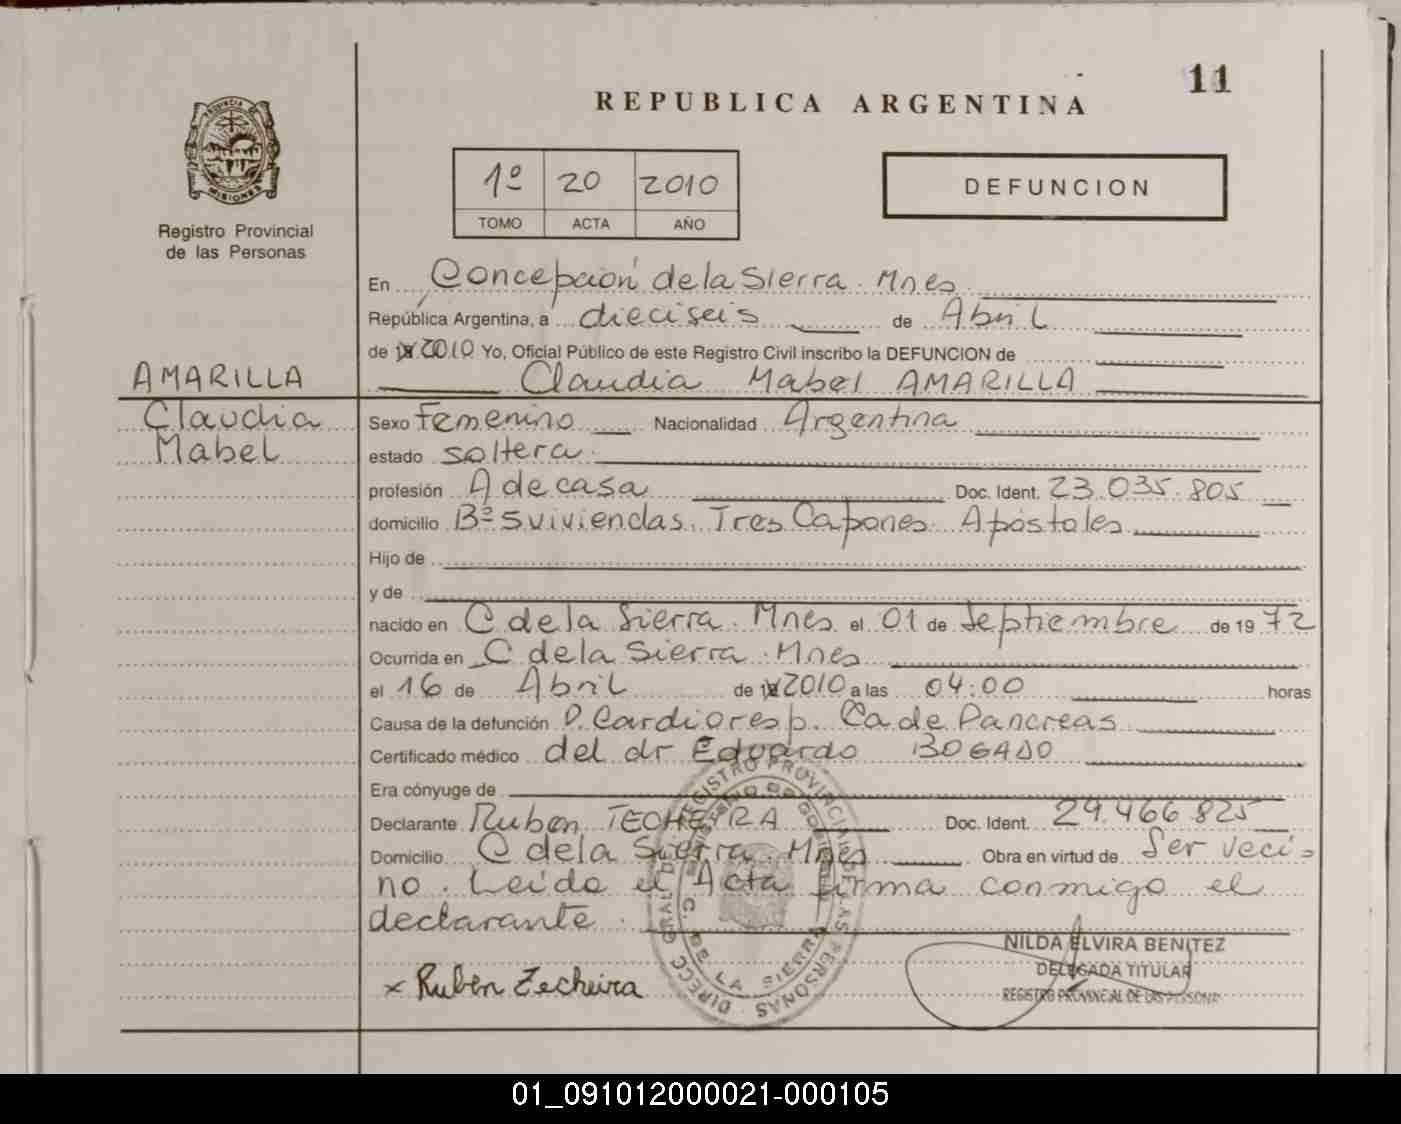 11
REPUBLICA ARGENTINA
PROVINCIA DE
MISIONES
Registro Provincial
de las Personas
1º 20 2010
TOMO ACTA AÑO
DEFUNCION
En Concepción de la Sierra. Mnes
República Argentina, a dieciseis de Abril
de 2010 Yo, Oficial Público de este Registro Civil inscribo la DEFUNCION de
Claudia Mabel AMARILLA
AMARILLA
Claudia
Mabel
Sexo Femenino Nacionalidad Argentina
estado soltera
profesión A de casa Doc. Ident. 23.035.805
domicilio Bº 5 viviendas. Tres Capones Apóstoles
Hijo de
y de
nacido en C de la Sierra. Mnes el 01 de Septiembre de 1972
Ocurrida en C de la Sierra. Mnes
el 16 de Abril de 2010 a las 04:00 horas
Causa de la defunción P. Cardioresp. Ca de Pancreas
Certificado médico del dr Eduardo BOGADO
Era cónyuge de
Declarante Ruben TECHEIRA Doc. Ident. 29.466.825
Domicilio C de la Sierra. Mnes Obra en virtud de Ser veci=
no. Leida el Acta firma conmigo el
declarante.
x Ruben Techeira
DIRECC GRAL DEL REGISTRO PROVINCIAL DE LAS PERSONAS
MINISTERIO DE GOBIERNO
C. DE LA SIERRA
NILDA ELVIRA BENITEZ
DELEGADA TITULAR
REGISTRO PROVINCIAL DE LAS PERSONAS
01_091012000021-000105